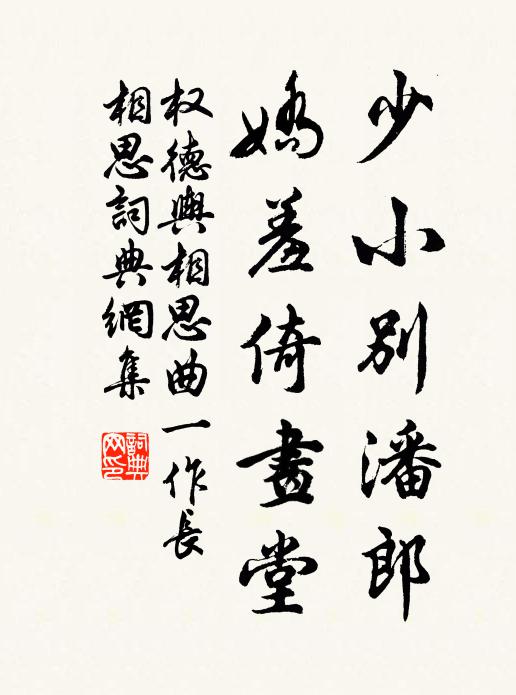 少小别潘郎
嬌羞倚畫堂
权德輿相思曲一作長
相思詞典網集
詞典网印